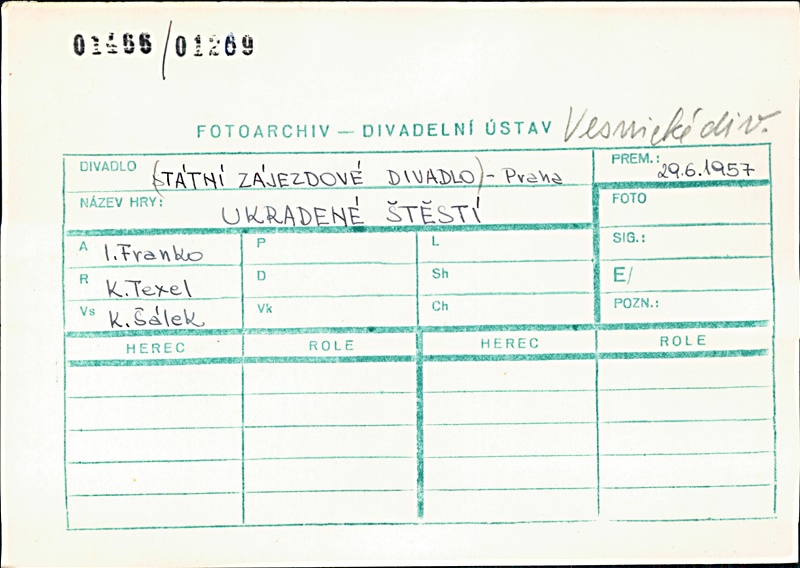 01466/01269
FOTOARCHIV — DIVADELNÍ ÚSTAV Vesnické div.
DIVADLO (STÁTNÍ ZÁJEZDOVÉ DIVADLO) - Praha
PREM.: 29.6.1957
NÁZEV HRY: UKRADENÉ ŠTĚSTÍ
FOTO
A I. Franko P L SIG.:
R K. Texel D Sh E/
Vs K. Šálek Vk Ch POZN.:
HEREC ROLE HEREC ROLE